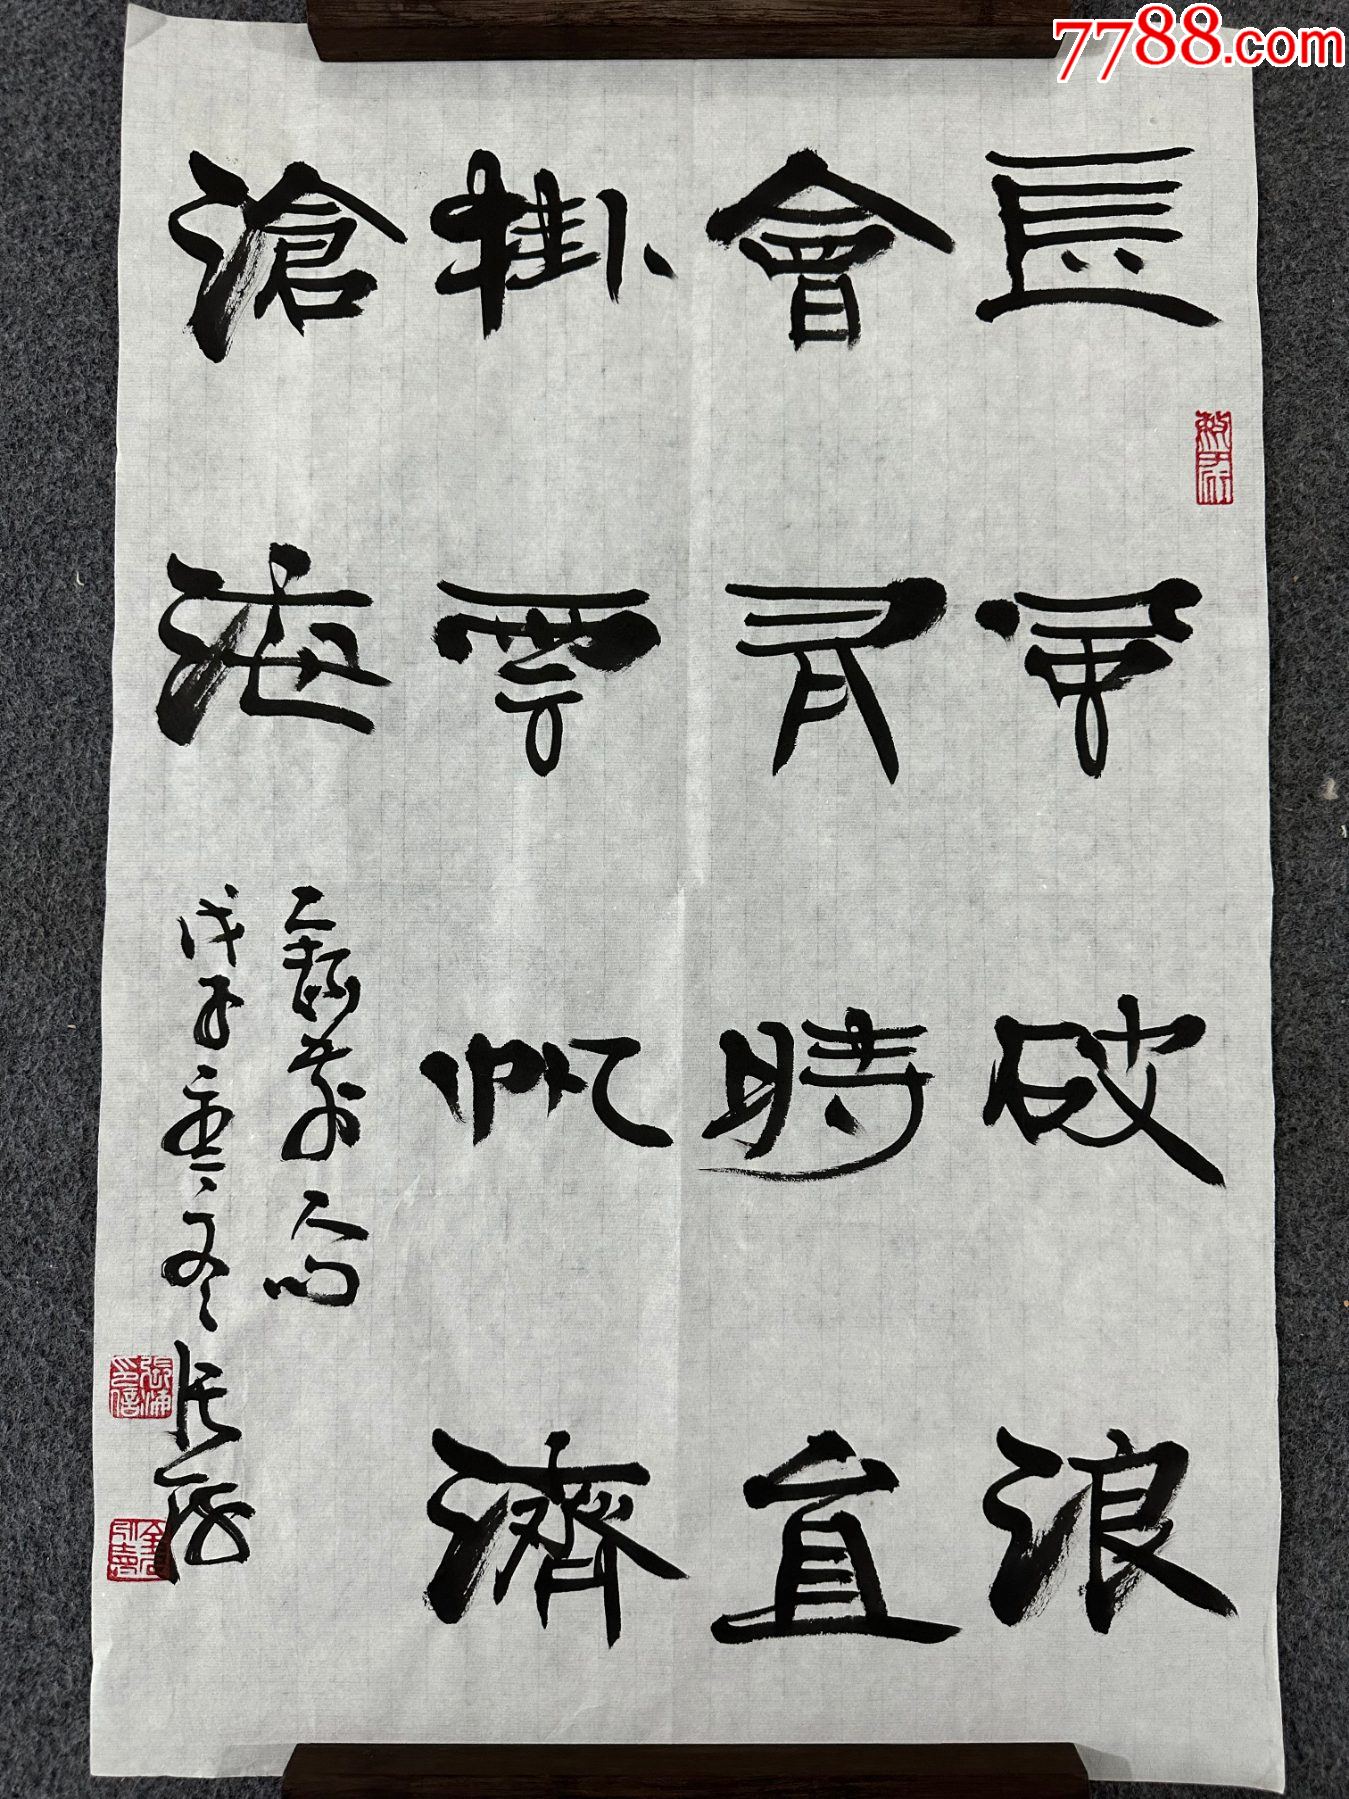 長風破浪
會有時直
掛雲帆濟
滄海
戊子
冬
7788.com